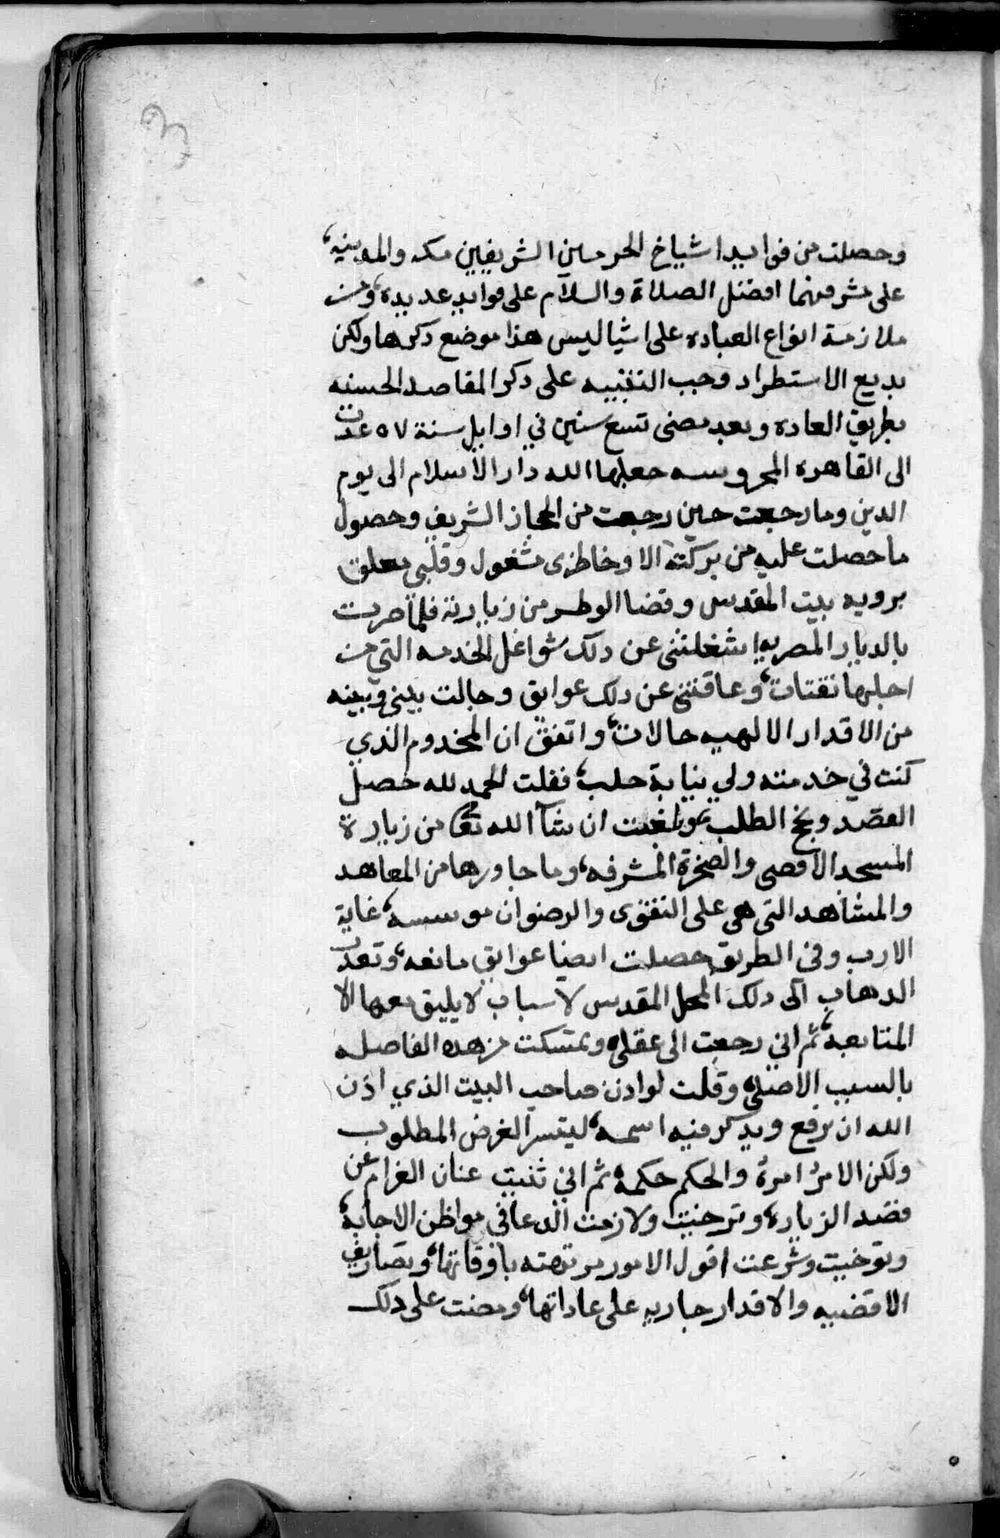 وحصلت من فوايد اشياخ الحرمين الشريفين مكه والمدينه،
على مشرفهما افضل الصلاة والسلام على فوايد عديده، ومن
ملازمة انواع العباده على اشيا ليس هذا موضع ذكرها ولكن
بديع الاستطراد وحب التنبيه على ذكر المقاصد الحسنه
بطريق العاده وبعد مضى تسع سنين في اوايل سنة ٥٧ عدت
الى القاهره المحروسه جعلها الله دار الاسلام الى يوم
الدين وما رجعت حين رجعت من الحجاز الشريف وحصول
ما حصلت عليه من بركته الا وخاطرى مشغول وقلبي معلق
برويه بيت المقدس وقضا الوطر من زيارته فلما صرت
بالديار المصريه اشغلتنى عن دلك شواغل الخدمه التي من
اجلها نقتات، وعاقتني عن دلك عوايق وحالت بيني وبينه
من الاقدار الالهيه حالات، واتفق ان المخدوم الذي
كنت في خدمته ولي نيابة حلب، فقلت الحمد لله حصل
القصد ونجح الطلب، وبلغت ان شآ الله تعالى من زيارة
المسجد الاقصى والصخرة المشرفه، وما جاورها من المعاهد
والمشاهد التي هي على التقوى والرضوان موسسه، غاية
الارب وفي الطريق حصلت ايضا عوايق مانعه، وتعذر
الدهاب الى دلك المحل المقدس لاسباب لا يليق معها الا
المتابعه، ثم اني رجعت الى عقلي وتمسكت من هده الفاصله
بالسبب الاصلي، وقلت لو اذن صاحب البيت الذي اذن
الله ان ترفع ويدكر فيه اسمه، ليتسر الغرض المطلوب
ولكن الامر امره والحكم حكمه، ثم اني ثنيت عنان الغرام عن
قصد الزياره، وترجيت ولازمت الدعا في مواطن الاجابه،
وتوخيت وشرعت اقول الامور مرتهنه باوقاتها، وتصاريف
الاقضيه والاقدار جاريه على عاداتها، ومضت على دلك